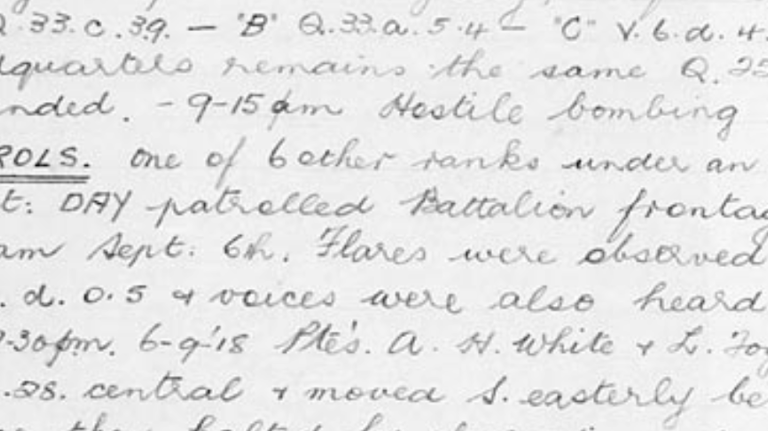 Q.33.c.39. – "B" Q.33.a.5.4 – "C" V.6.d.4.
dquarters remains the same Q.25
nded. – 9-15 am Hostile bombing
ROLS. One of 6 other ranks under an
t: DAY patrolled Battalion frontag
am Sept: 6th. Flares were observed
. d. 0.5 & voices were also heard
-30pm. 6-9-'18 Pte's. A. H. White & L. Foy
.28. central & moved S. easterly be